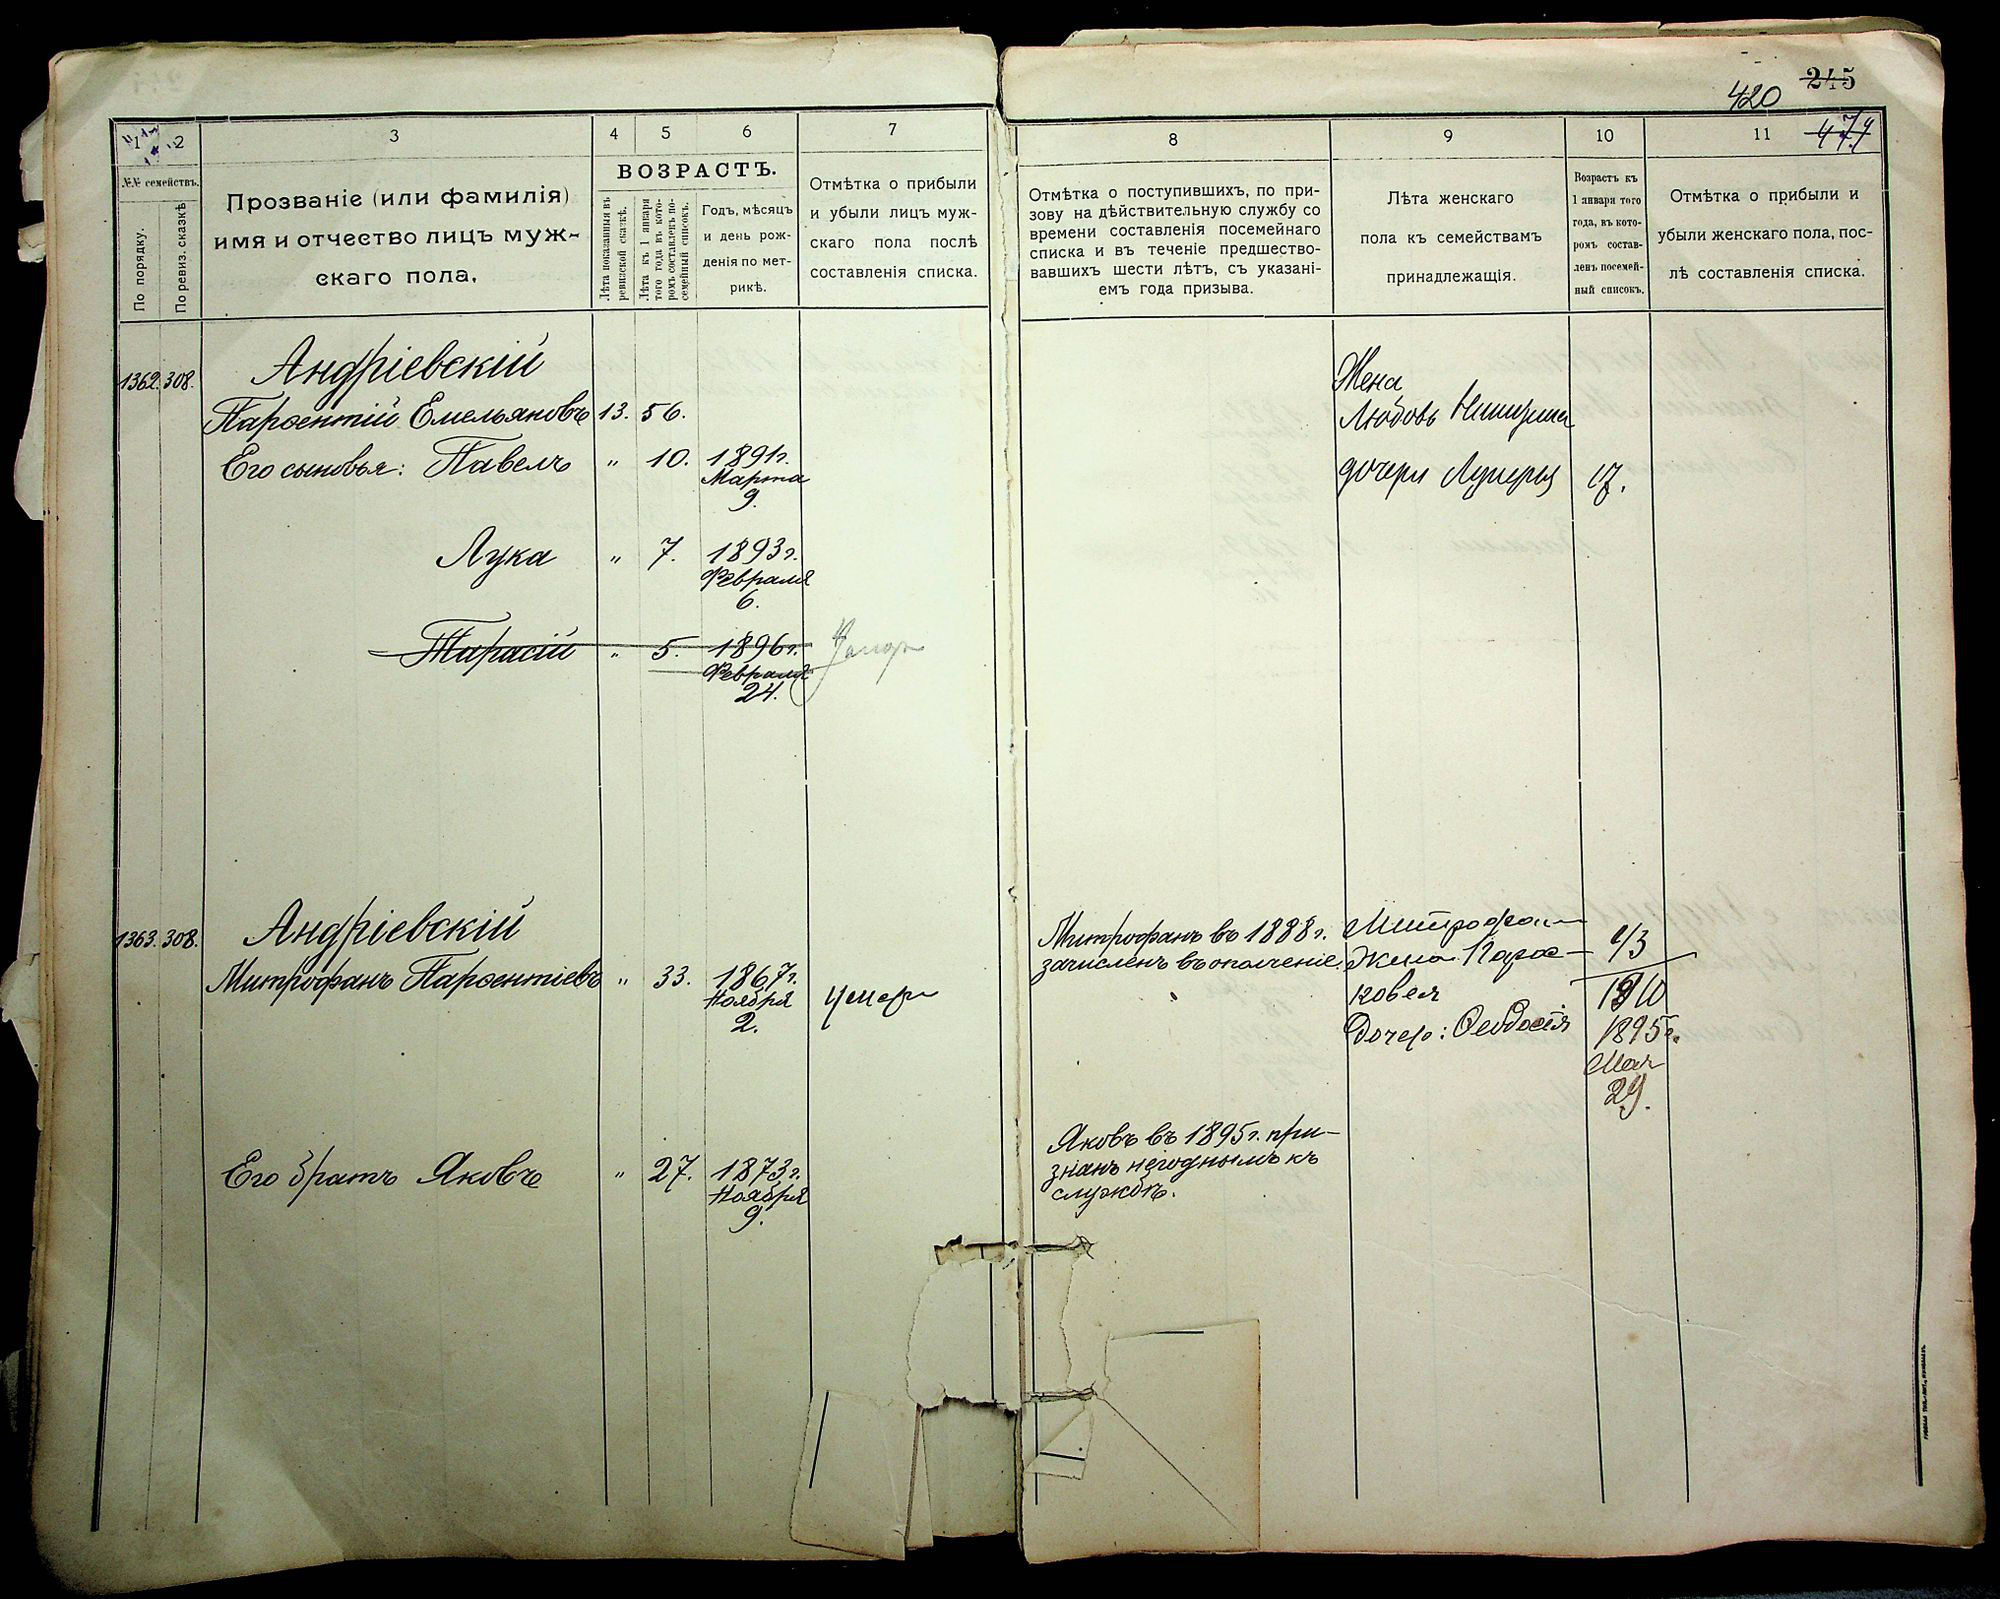 245
420
474
1
2
3
4
5
6
7
№№ семействъ.
По порядку.
По ревиз. сказкѣ
Прозваніе (или фамилія)
имя и отчество лицъ муж-
скаго пола.
ВОЗРАСТЪ.
Лѣта показанныя въ
ревизской сказкѣ.
Лѣта къ 1 января
того года въ кото-
ромъ составленъ по-
семейный списокъ.
Годъ, мѣсяцъ
и день рож-
денія по мет-
рикѣ.
Отмѣтка о прибыли
и убыли лицъ муж-
скаго пола послѣ
составленія списка.
8
9
10
11
Отмѣтка о поступившихъ, по при-
зову на дѣйствительную службу со
времени составленія посемейнаго
списка и въ теченіе предшество-
вавшихъ шести лѣтъ, съ указані-
емъ года призыва.
Лѣта женскаго
пола къ семействамъ
принадлежащія.
Возрастъ къ
1 января того
года, въ кото-
ромъ состав-
ленъ посемей-
ный списокъ.
Отмѣтка о прибыли и
убыли женскаго пола, пос-
лѣ составленія списка.
1362. 308. Андріевскій
Парфентій Емельяновъ 13. 56.
Его сыновья: Павелъ " 10. 1891г.
Марта
9.
Лука " 7. 1893г.
Февраля
6.
Тарасій " 5. 1896г.
Февраля
24.
Жена
Любовь
дочери 17.
1363. 308. Андріевскій
Митрофанъ Парфентіевъ " 33. 1867г.
Ноября
2.
умер
Его братъ Яковъ " 27. 1873г.
Ноября
9.
Митрофанъ въ 1888г.
зачисленъ въ ополченіе.
Яковъ въ 1895г. при-
знанъ негоднымъ къ
службѣ.
Митрофан
жена Парас- 43
ковея 1910
Дочер: Феодосія 1895г.
Мая
29.